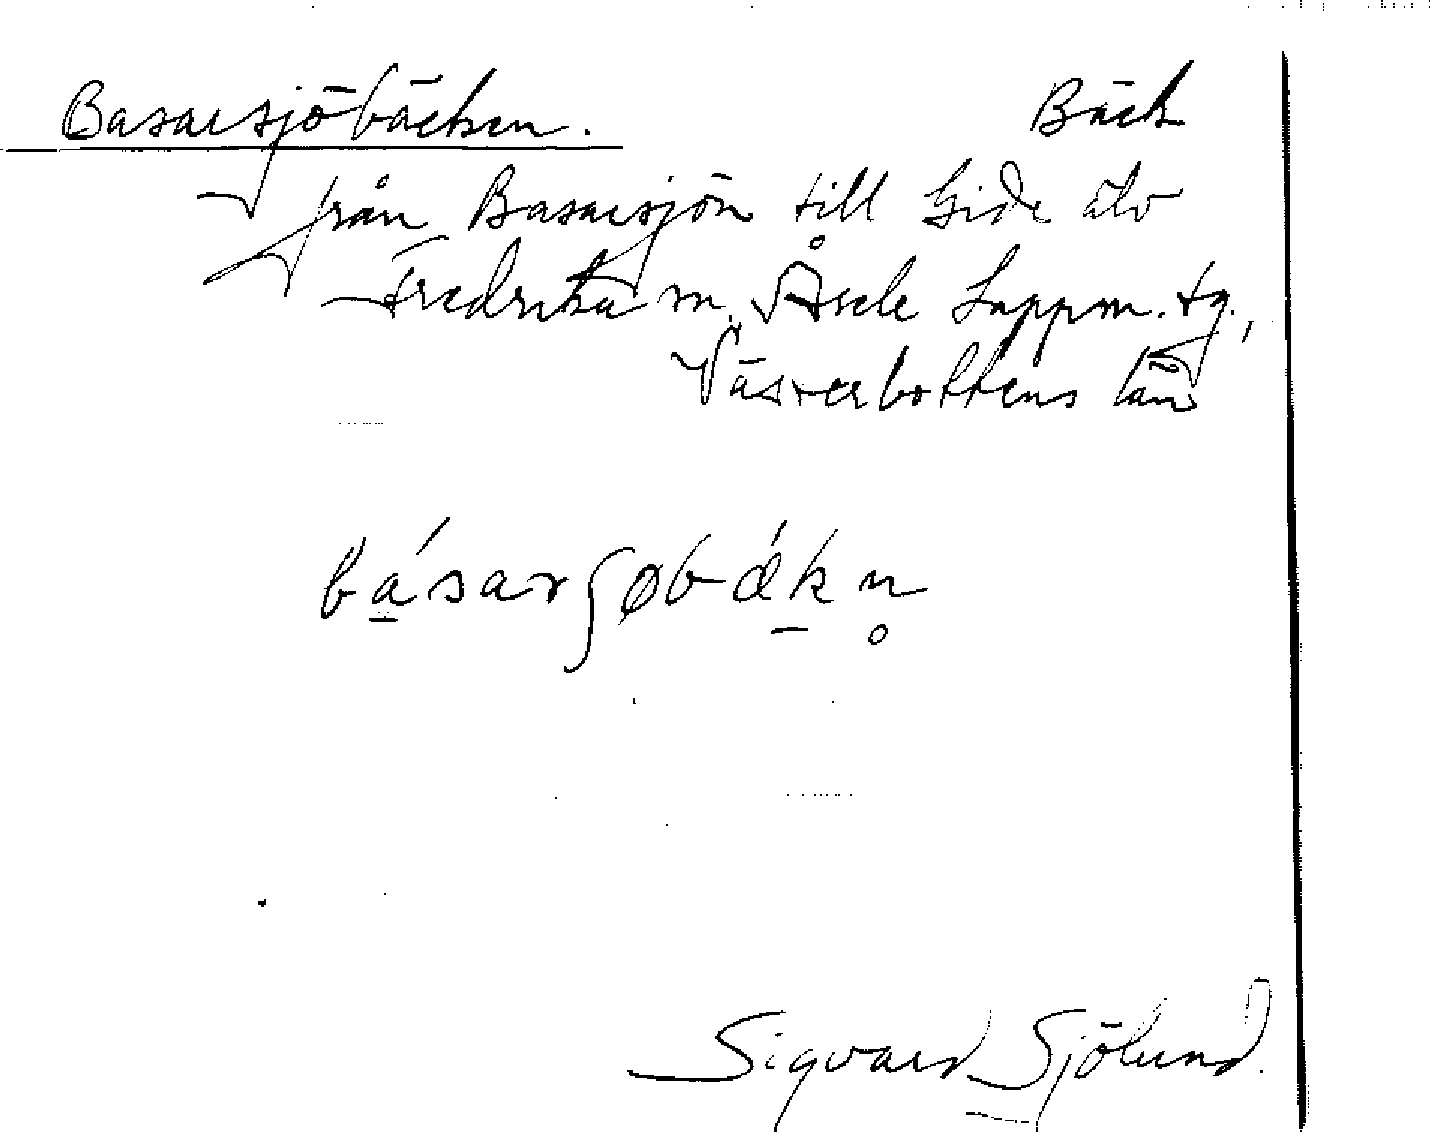 Basarsjöbäcken. Bäck
från Basarsjön till Gide älv
Fredrika sn. Åsele Lappm. tg.,
Västerbottens län
bása̱rʃøbǽḵn̥
Sigvard Sjölund.